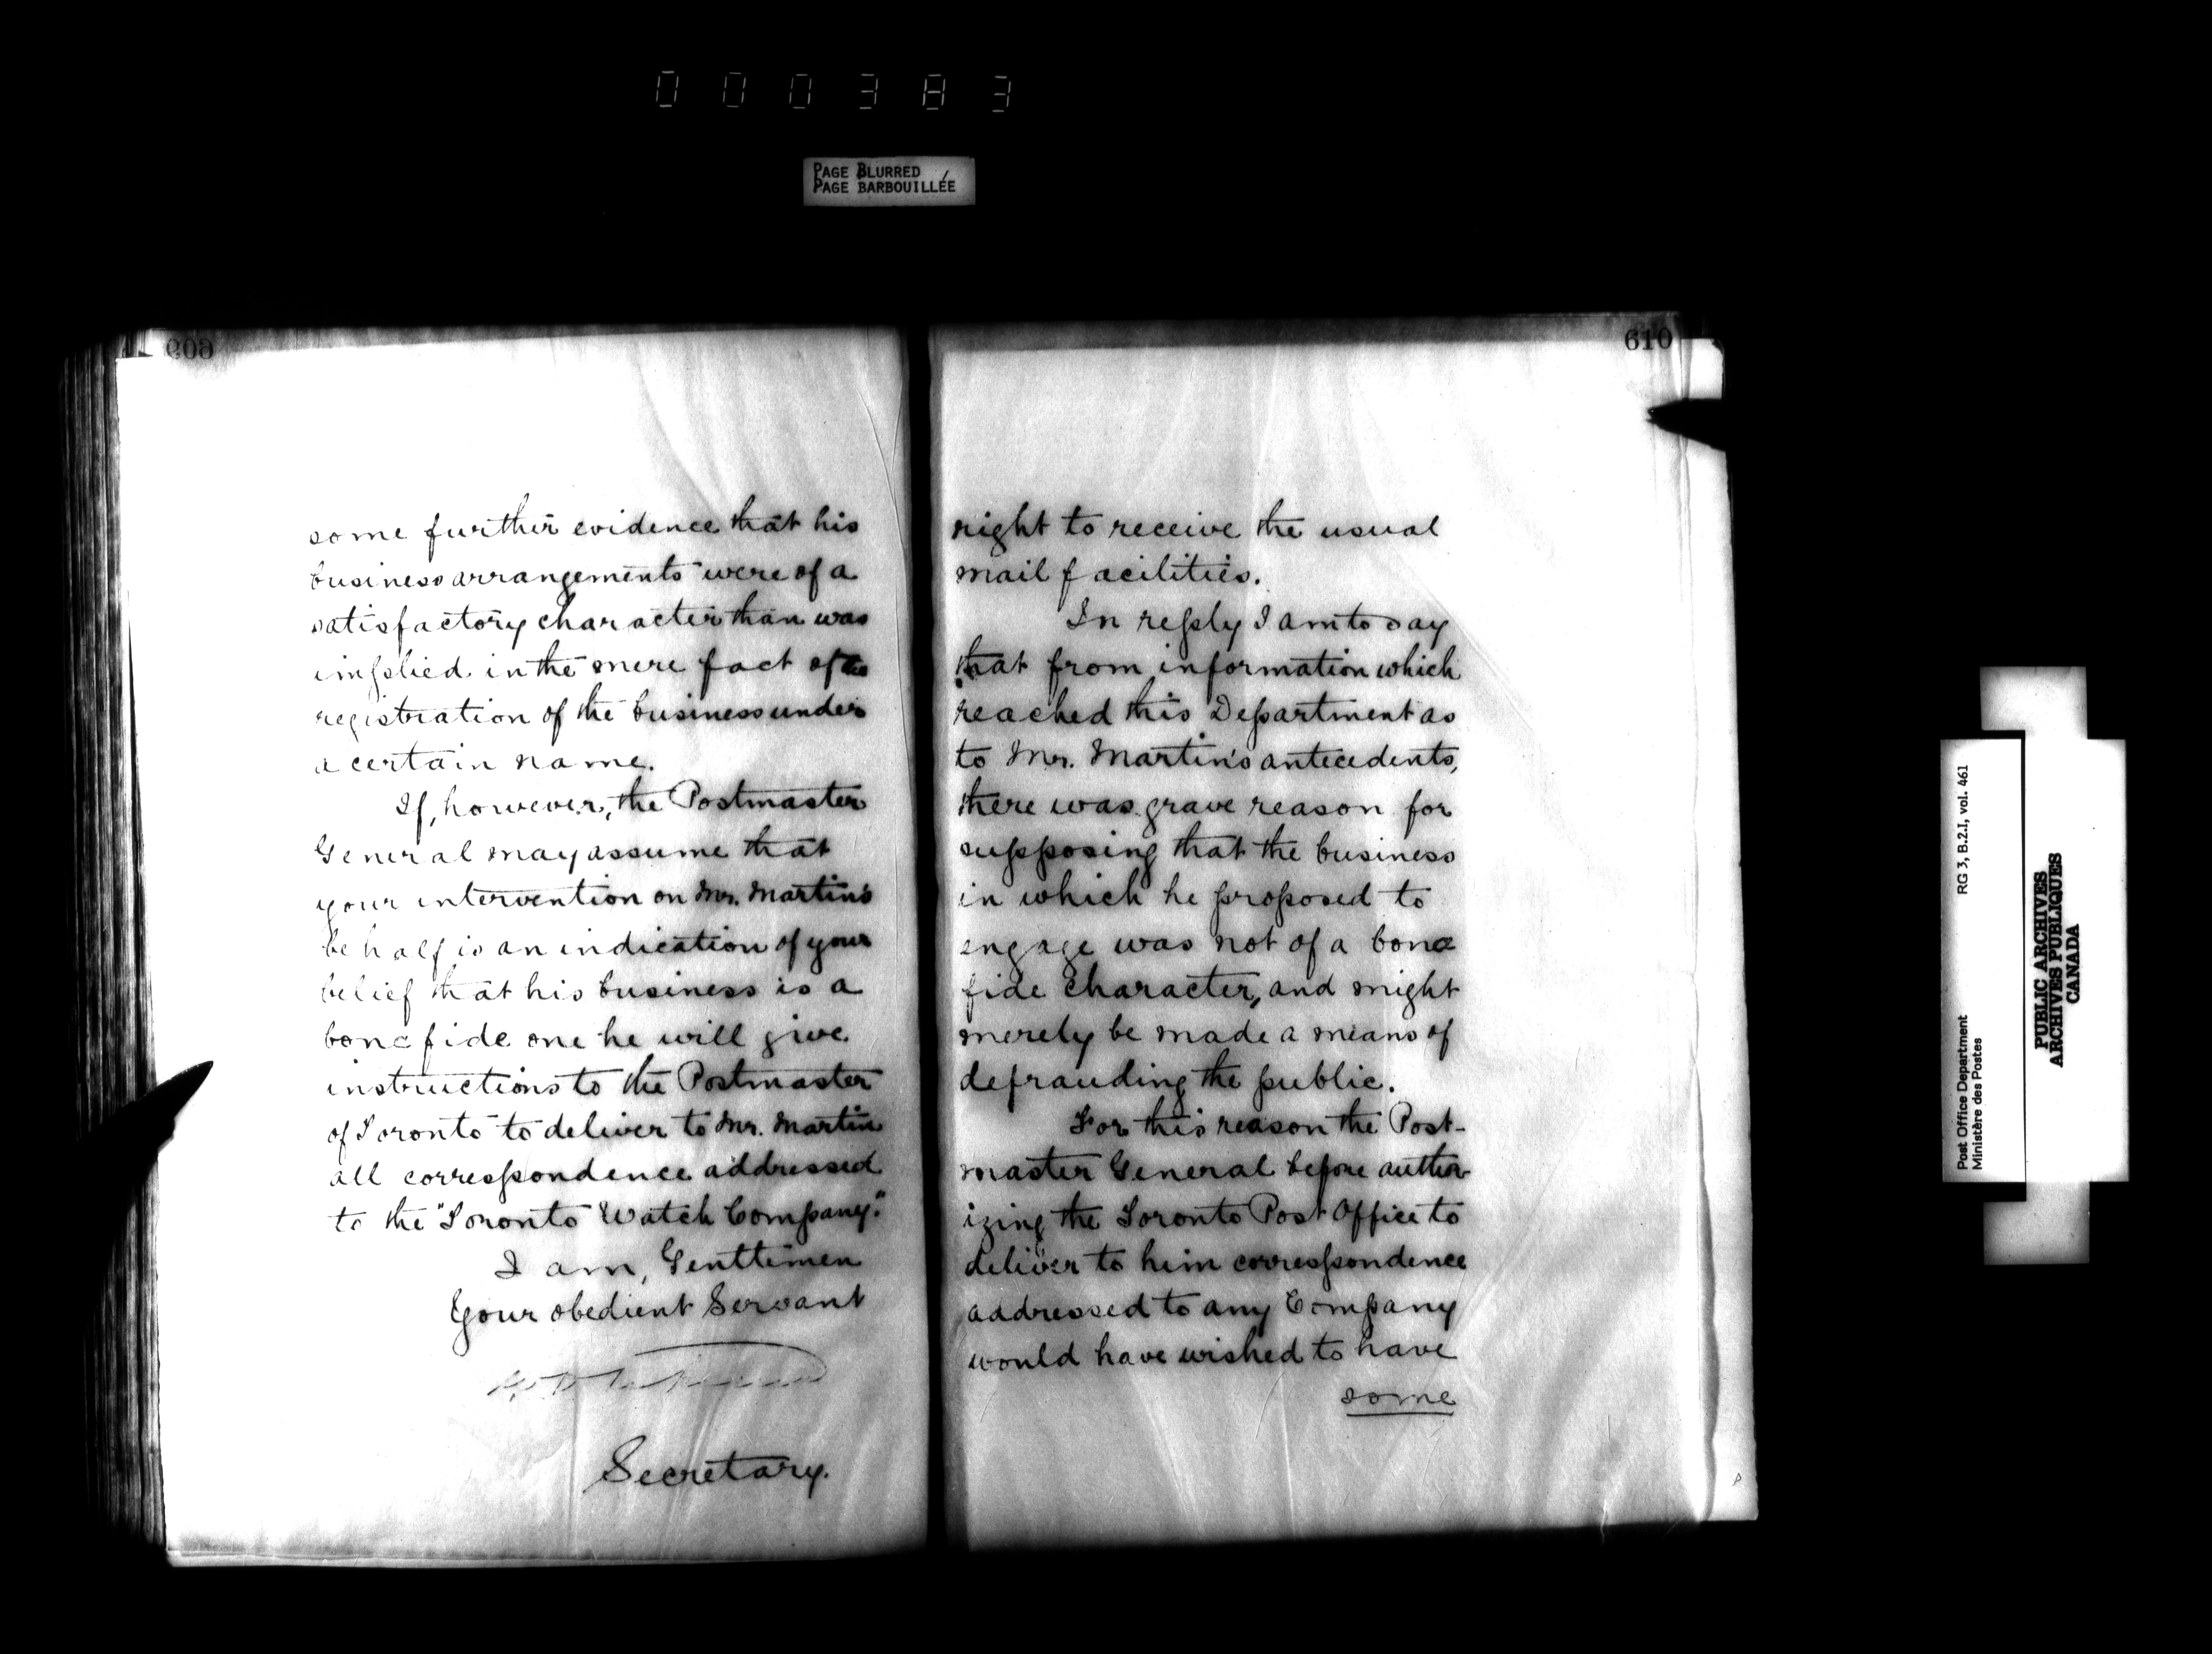 000383
PAGE BLURRED
PAGE BARBOUILLÉE
609
some further evidence that his
business arrangements were of a
satisfactory character than was
implied in the mere fact of the
registration of the business under
a certain name.
If, however, the Postmaster
General may assume that
your intervention on Mr. Martin's
behalf is an indication of your
belief that his business is a
bona fide one he will give
instructions to the Postmaster
of Toronto to deliver to Mr. Martin
all correspondence addressed
to the "Toronto Watch Company."
I am, Gentlemen
Your obedient Servant
Secretary.
610
right to receive the usual
mail facilities.
In reply I am to say
that from information which
reached this Department as
to Mr. Martin's antecedents,
there was grave reason for
supposing that the business
in which he proposed to
engage was not of a bona
fide character, and might
merely be made a means of
defrauding the public.
For this reason the Post-
master General before author
izing the Toronto Post Office to
deliver to him correspondence
addressed to any Company
would have wished to have
some
Post Office Department RG 3, B.2.I, vol. 461
Ministère des Postes
PUBLIC ARCHIVES
ARCHIVES PUBLIQUES
CANADA